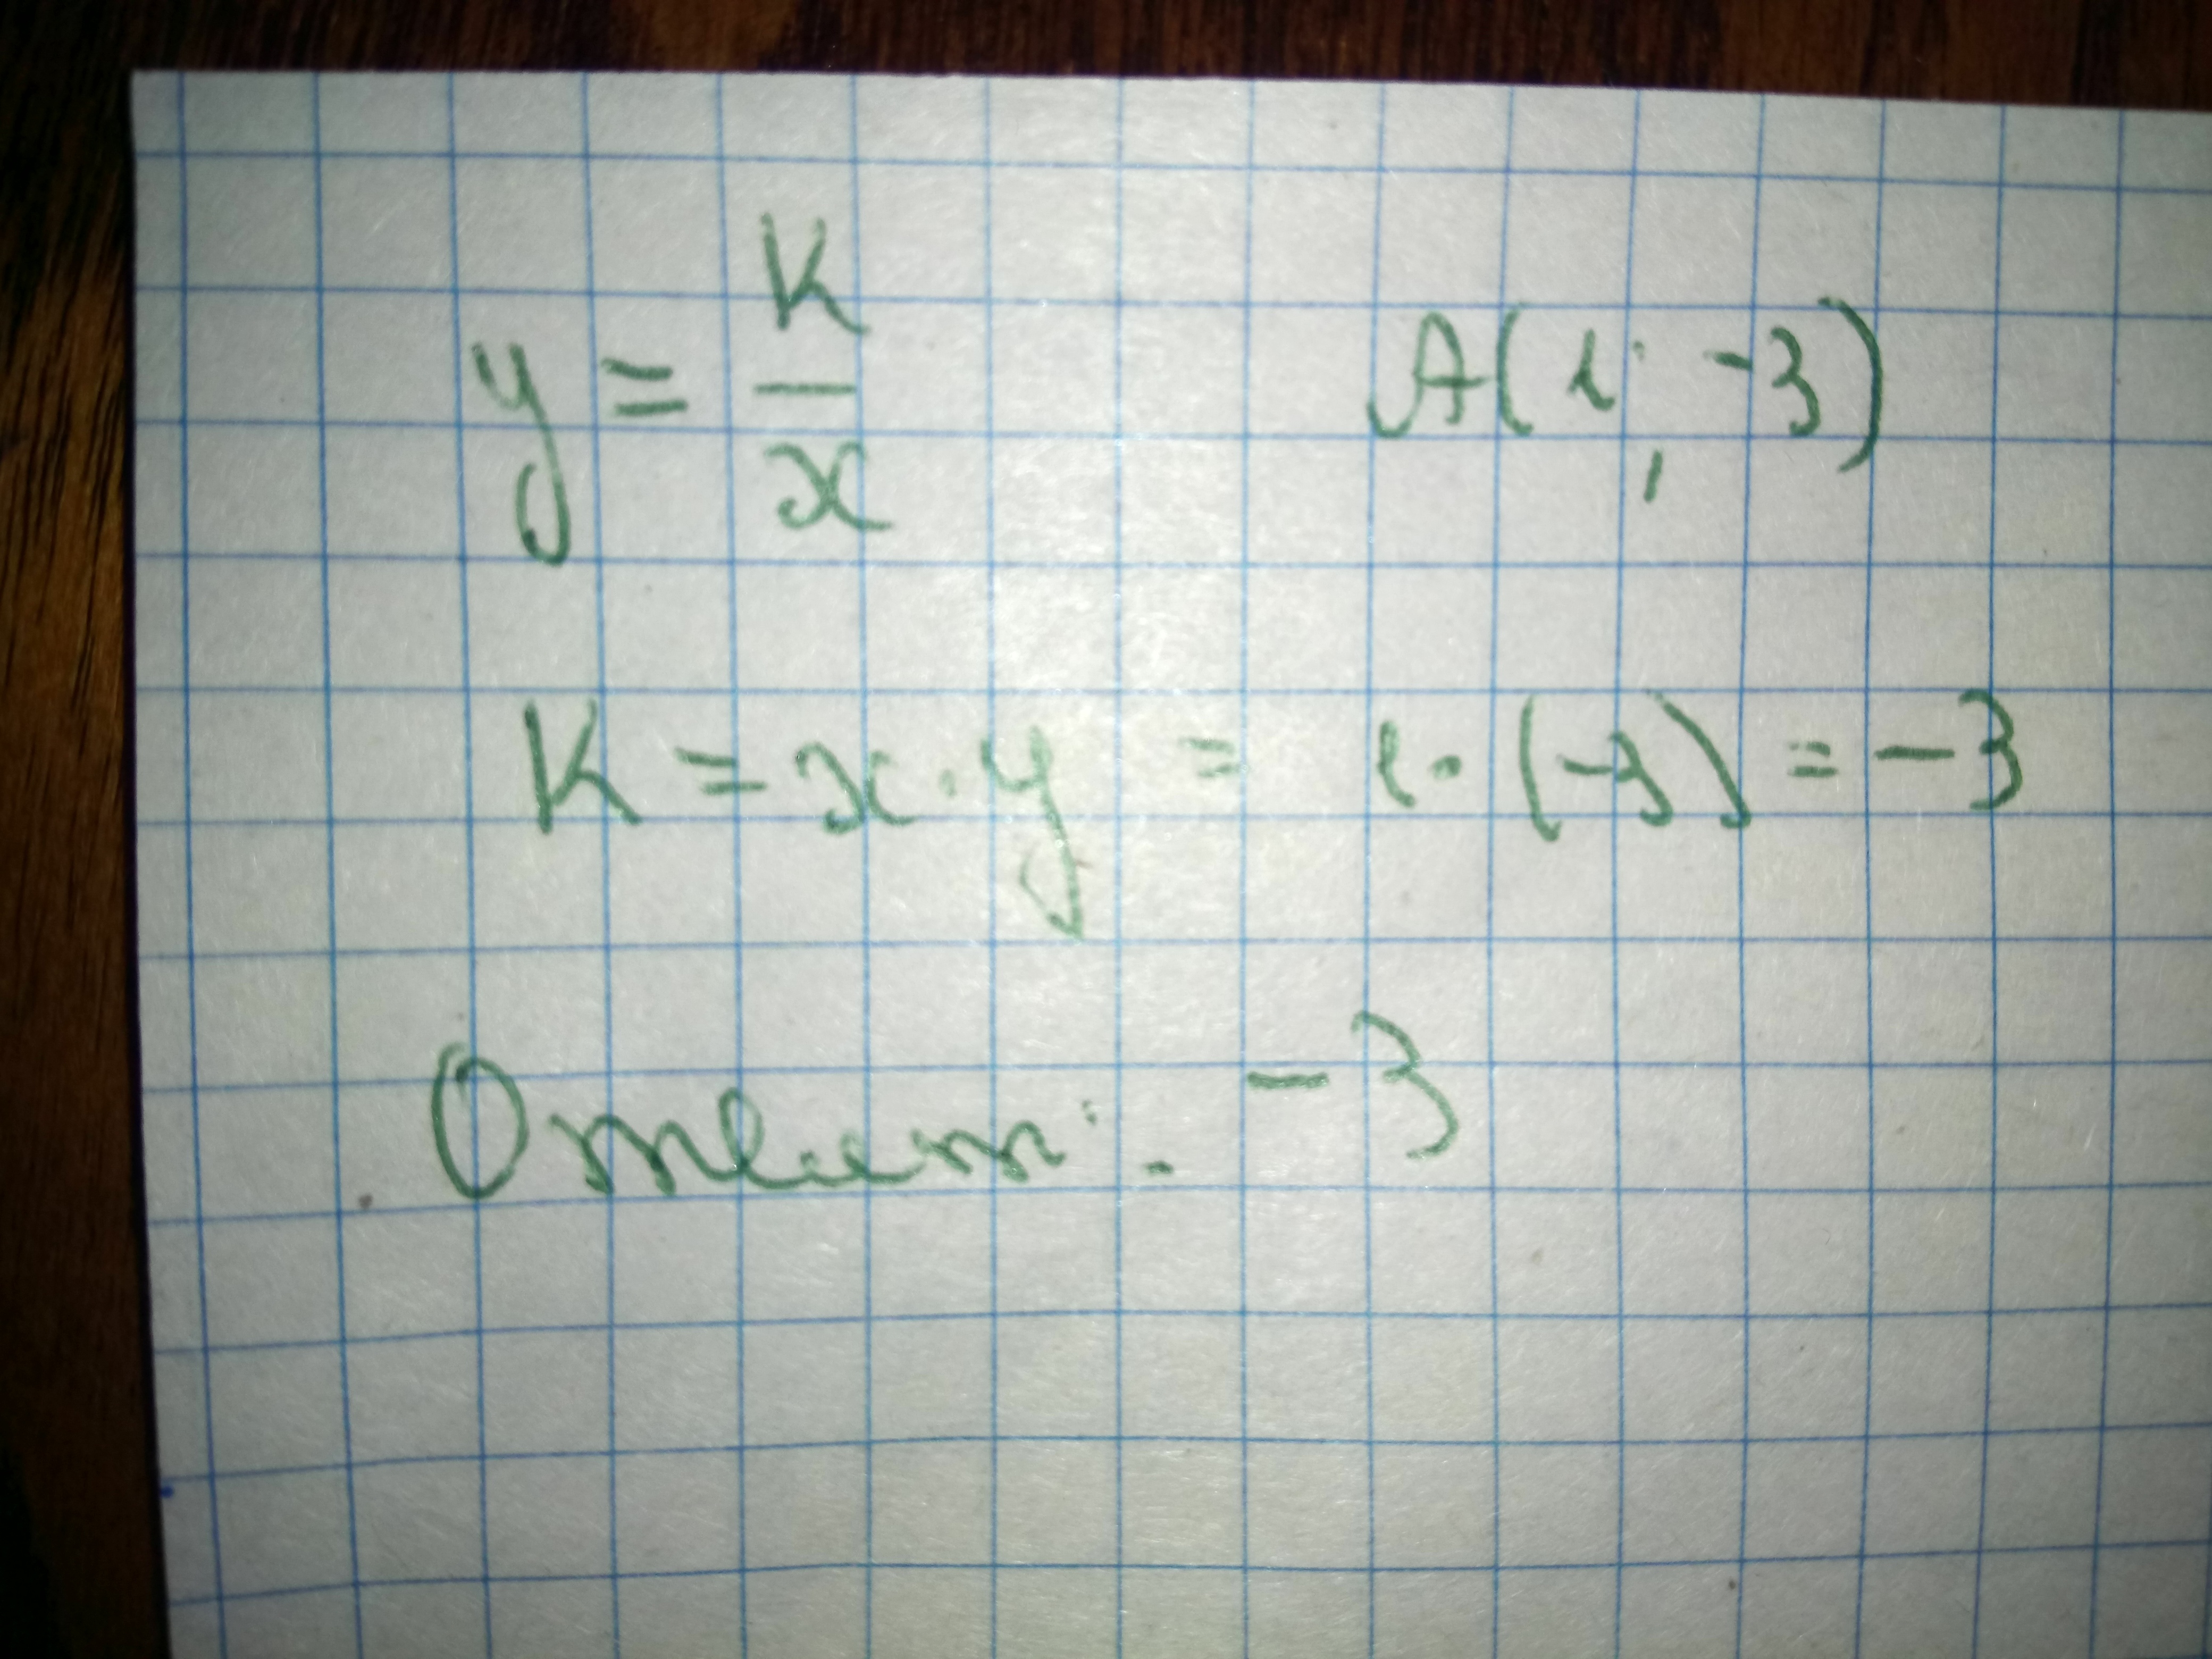 y = K/x A(1; -3)
K = x · y = 1 · (-3) = -3
Ответ: -3